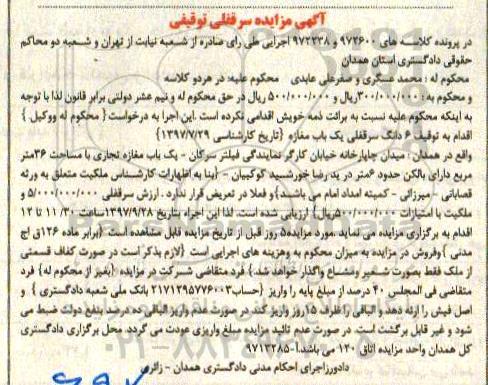 آگهی مزایده سرقفلی توقیفی
در پرونده کلاسه های ۹۷۲۶۰۰ و ۹۷۲۳۳۸ اجرایی طی رای صادره از شعبه نیابت از تهران و شعبه دو محاکم
حقوقی دادگستری استان همدان
محکوم له : محمد عسگری و صفرعلی عابدی محکوم علیه: در هردو کلاسه
و محکوم به : ۳۰۰/۰۰۰/۰۰۰ریال و ۵۰۰/۰۰۰/۰۰۰ ریال در حق محکوم له و نیم عشر دولتی برابر قانون لذا با توجه
به اینکه محکوم علیه نسبت به برائت ذمه خویش اقدامی نکرده است .این اجرا به درخواست { محکوم له ووکیل }
اقدام به توقیف ۶ دانگ سرقفلی یک باب مغازه {تاریخ کارشناسی ۱۳۹۷/۷/۲۹}
واقع در همدان : میدان چاپارخانه خیابان کارگر نمایندگی فیلتر سرکان - یک باب مغازه تجاری با مساحت ۳۶متر
مربع دارای بالکن حدود ۶متر در ید رضا خورشبید کوکبیان - {بنا به اظهارات کارشناس ملکیت متعلق به ورثه
قصابانی - میرزائی - کمیته امداد امام می باشند}و فعلا در تعریض قرار ندارد . ارزش سرقفلی ۵/۰۰۰/۰۰۰/۰۰۰ و
ملکیت با امتیازات ۵۰۰/۰۰۰/۰۰۰ریال} ارزیابی شده است. لذا این اجراء بتاریخ ۱۳۹۷/۹/۲۸ساعت ۱۱/۳۰ تا ۱۲
اقدام به برگزاری مزایده می نماید .مورد مزایده۵ روز قبل از تاریخ مزایده قابل مشاهده است {برابر ماده ۱۲۶ق اج
مدنی }وفروش در مزایده به میزان محکوم به وهزینه های اجرایی است {لازم بذکر است در صورت کفاف قسمتی
از ملک فقط بصورت شعیر ومشاع واگذار خواهد شد.} فرد متقاضی شرکت در مزایده {بغیر از محکوم له} فرد
متقاضی فی المجلس ۴۰ درصد از مبلغ پایه را واریز {حساب۲۱۷۱۲۹۵۷۷۶۰۰۳ بانک ملی شعبه دادگستری } و
اصل فیش را ارئه دهد و الباقی را ظرف ۱۵روز واریز کند. در صورت عدم واریز الباقی ده درصد بنفع دولت ضبط می
شود و غیر قابل برگشت است. در صورت عدم تائید مزایده مبلغ واریزی عودت می گردد. محل برگزاری دادگستری
کل همدان واحد مزایده اتاق ۱۲۰ می باشد.آ-۹۷۱۳۲۸۵
دادورزاجرای احکام مدنی دادگستری همدان - زائری